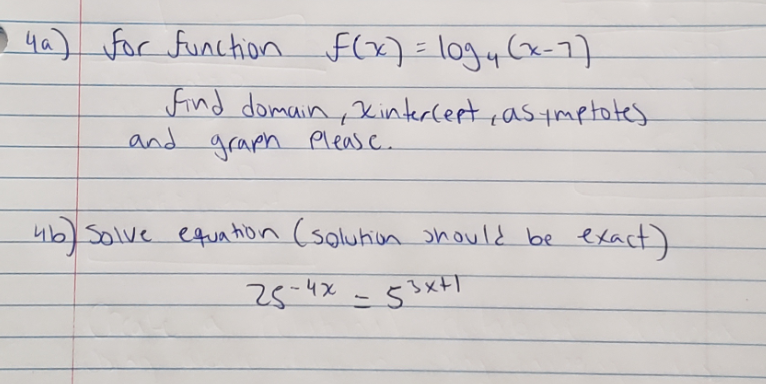 4a) for function f(x) = log₄(x-7)
find domain, x intercept, asymptotes
and graph please.
4b) Solve equation (solution should be exact)
25⁻⁴ˣ = 5³ˣ⁺¹